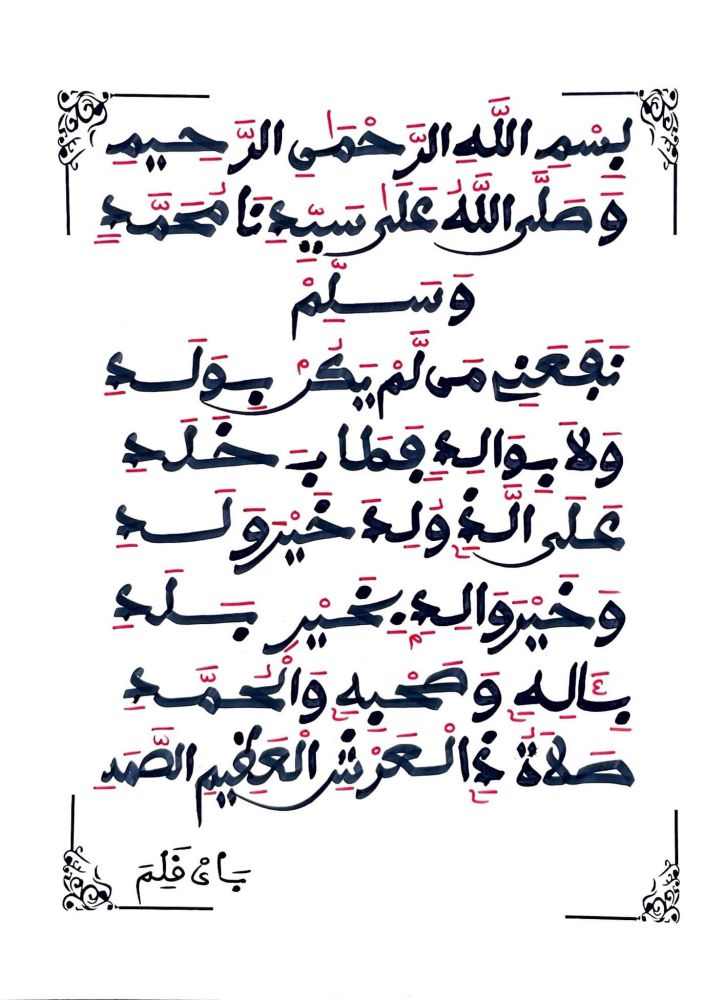 بِسْمِ اللَّهِ الرَّحْمَٰنِ الرَّحِيمِ
وَصَلَّى اللَّهُ عَلَى سَيِّدِنَا مُحَمَّدٍ
وَسَلِّمْ
نَفَعَنِي مَن لَّمْ يَكُنْ بِوَلَدِ
وَلَا بِوَالِدٍ فَطَابَ خَلَدِ
عَلَى الَّذِي وُلِدَ خَيْرَ وَلَدِ
وَخَيْرَ وَالِدٍ بِخَيْرِ بَلَدِ
بِآلِهِ وَصَحْبِهِ وَالْحُمَّدِ
صَلَاةُ ذِي الْعَرْشِ الْعَظِيمِ الصَّمَدِ
بَايْ فَلِمَ